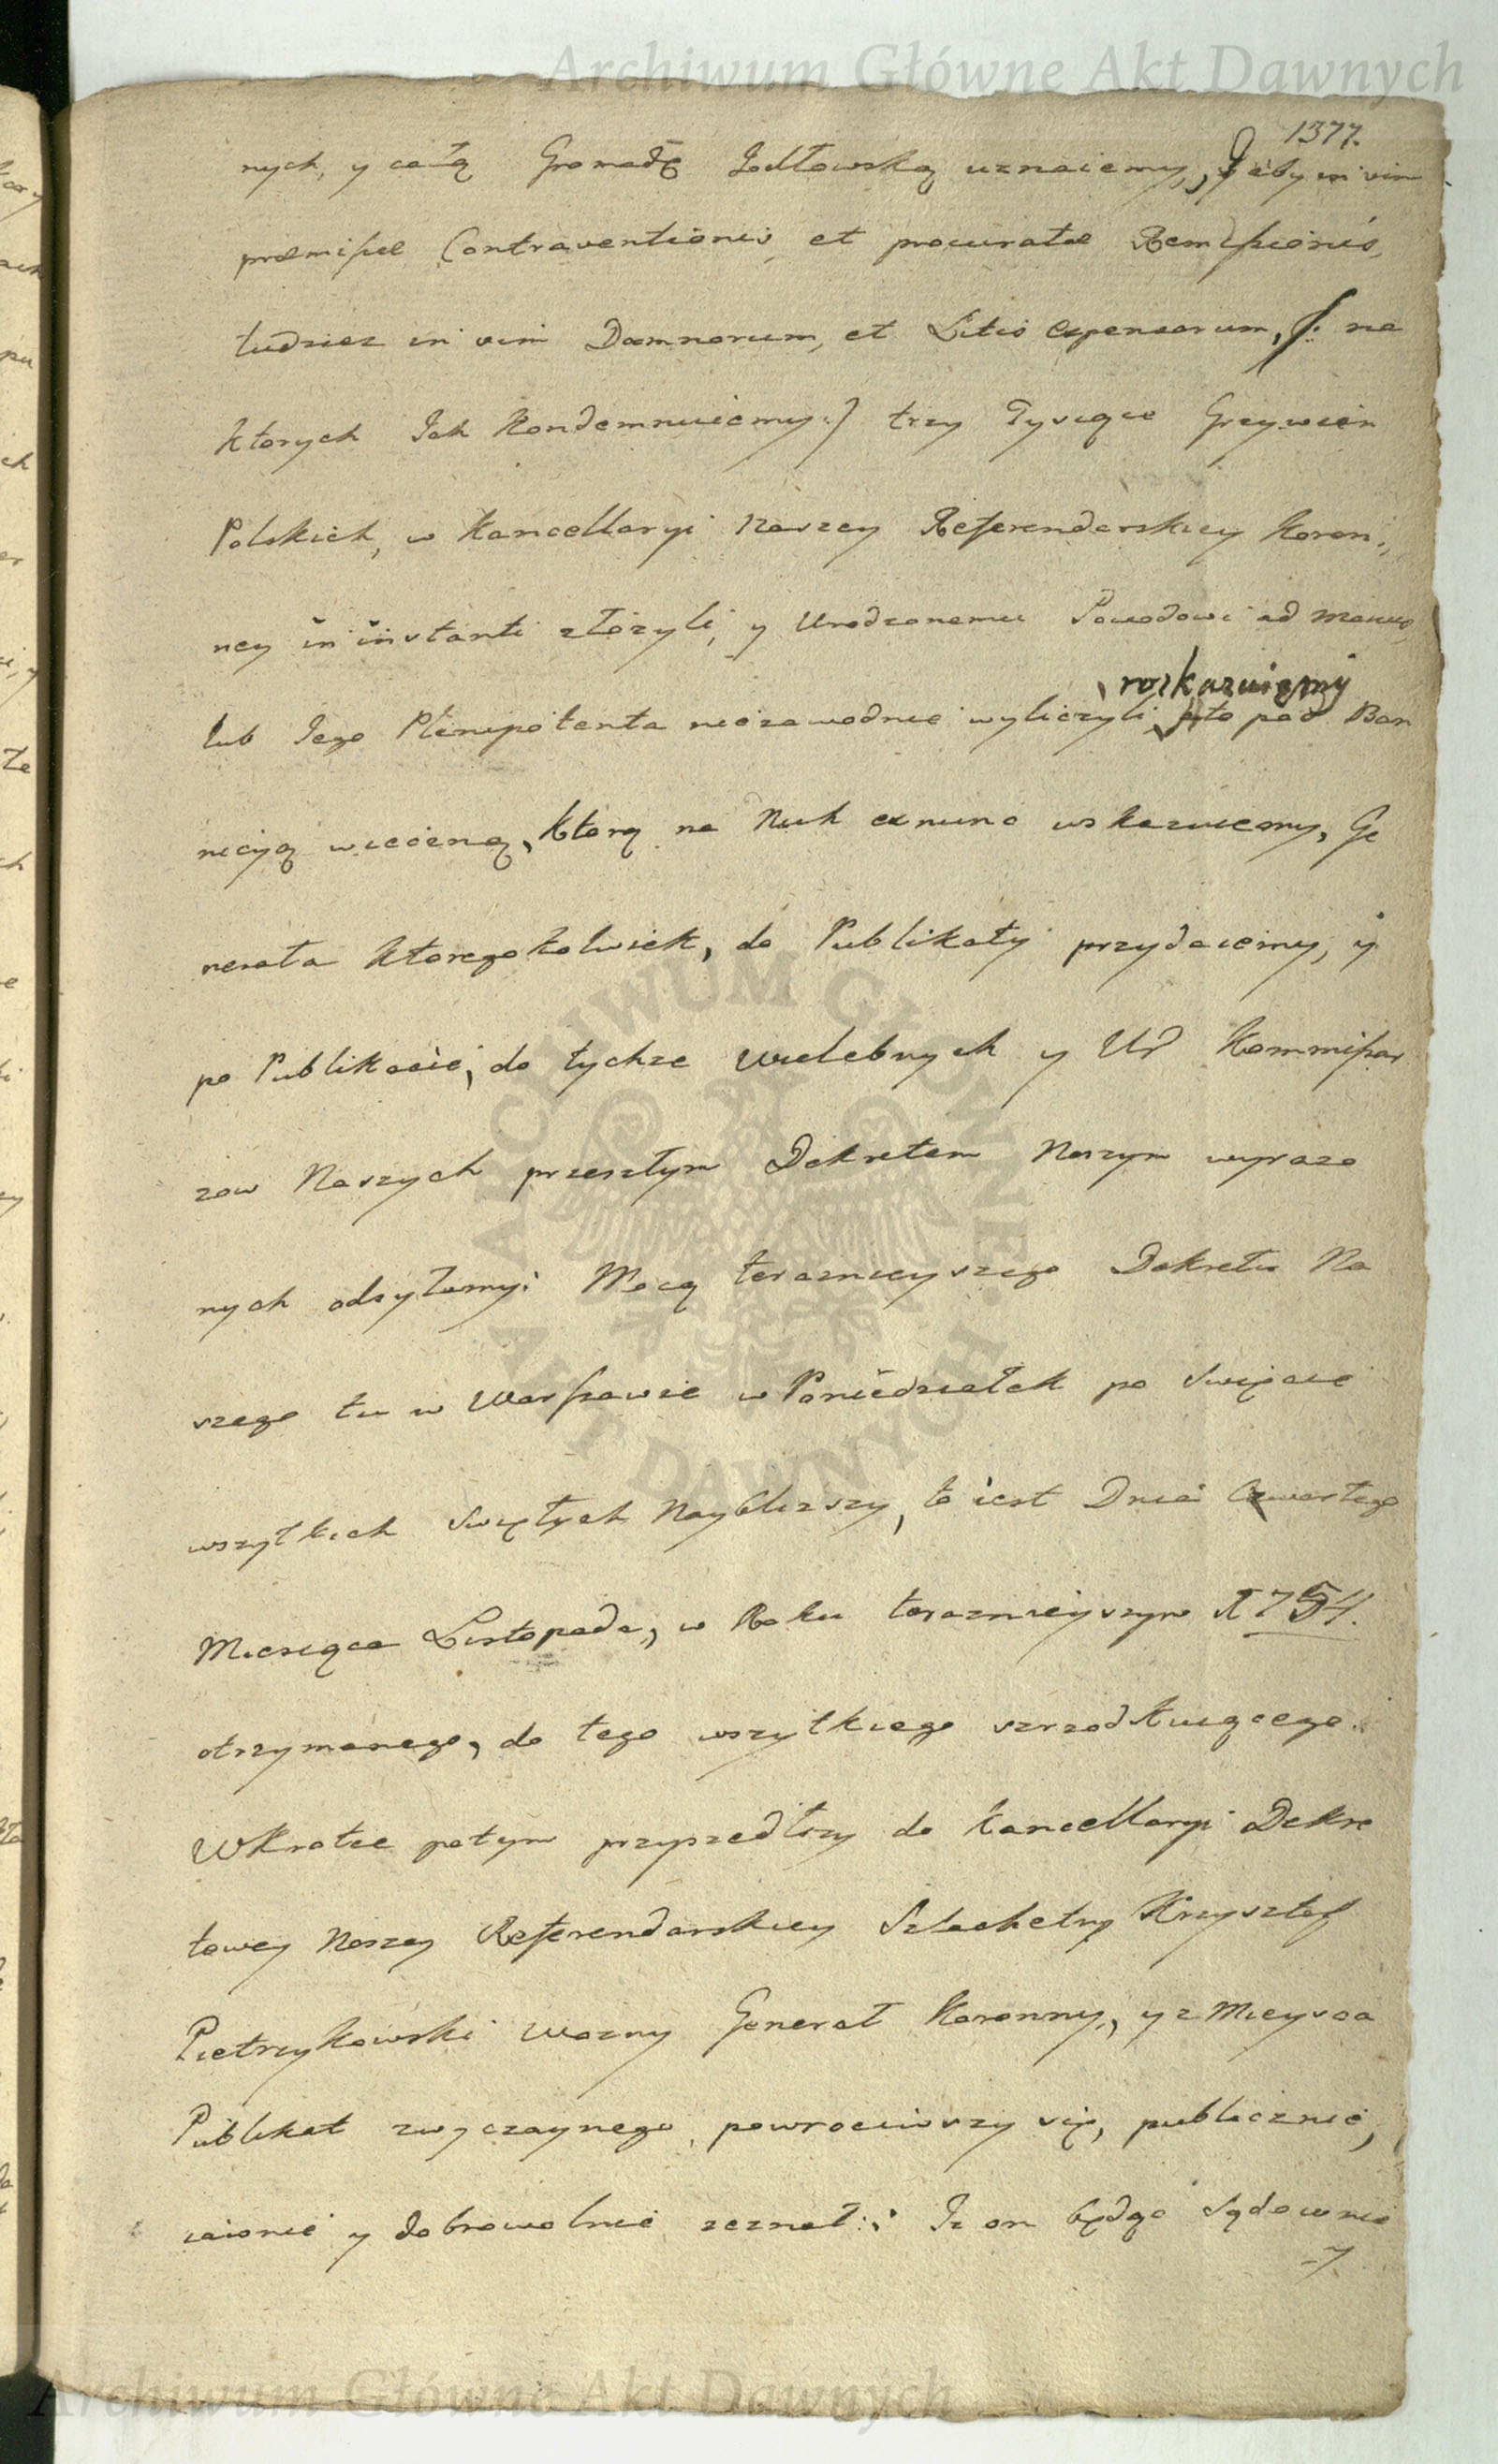 Archiwum Główne Akt Dawnych
1377.
nych, y całą Gromadę Jodłowską uznaiemy, ażeby in vim
præmissæ Contraventionis, et procuratæ Remissionis,
tudziez in vim Damnorum, et Litis Expensarum, /: na
ktorych Jch Kondemnuiemy :/ trzy Tysiące Grzywien
Polskich, w Kancellaryi Naszey Referendarskiey Koron,,
ney in instanti złożyli, y Urodzonemu Powodowi ad manus
roskazuiemy
lub Jego Plenipotenta niezawodnie wyliczyli, a to pod Ban
nicyą wieczną, ktorą na Nich exnunc wskazuiemy, Ge
nerała ktoregokolwiek, do Publikaty przydaiemy, y
po Publikacie, do tychze Wielebnych y Ur Kommissar
zow Naszych przeszłym Dekretem Naszym wyrazo
nych odsyłamy: Mocą teraznieyszego Dekretu Na
szego tu w Warszawie w Poniedziałek po Swięcie
wszytkich Swiętych Naybliszszy, to iest Dnia Czwartego
Miesiąca Listopada, w Roku teraznieyszym 1754.
otrzymanego, do tego wszytkiego szrzodkuiącego.
Wkrotce potym przyszedłszy do Kancellaryi Dekre
towey Naszey Referendarskiey Szlachetny Krzysztof
Pietrzykowski Wozny Generał Koronny, y z Mieysca
Publikat zwyczaynego powrociwszy się, publicznie,
iawnie y dobrowolnie zeznał: Jz on będąc Sądownie
ARCHIWUM GŁÓWNE AKT DAWNYCH
Archiwum Główne Akt Dawnych